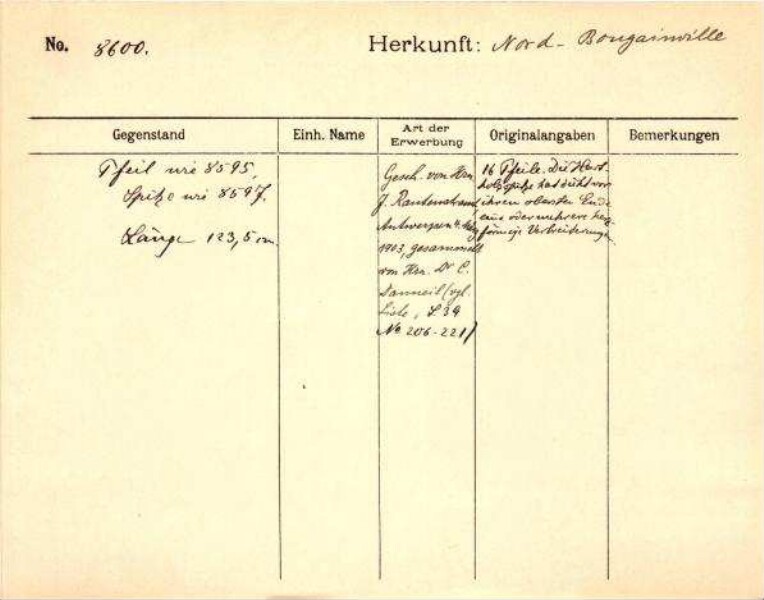 No. 8600.
Herkunft: Nord-Bougainville
Gegenstand
Einh. Name
Art der
Erwerbung
Originalangaben
Bemerkungen
Pfeil wie 8595,
Spitze wie 8597.
Länge 123,5 cm
Gesch. von Hrn
J. Rautenstrauch,
Antwerpen 4.
1903, gesammelt
von Hrn. Dr C.
Danneil (vgl.
Liste, S 39
No 206-221)
16 Pfeile. Die Hart-
holzspitze hat dicht vor
ihrem obersten Ende
eine oder mehrere
förmige Verbreiterungen